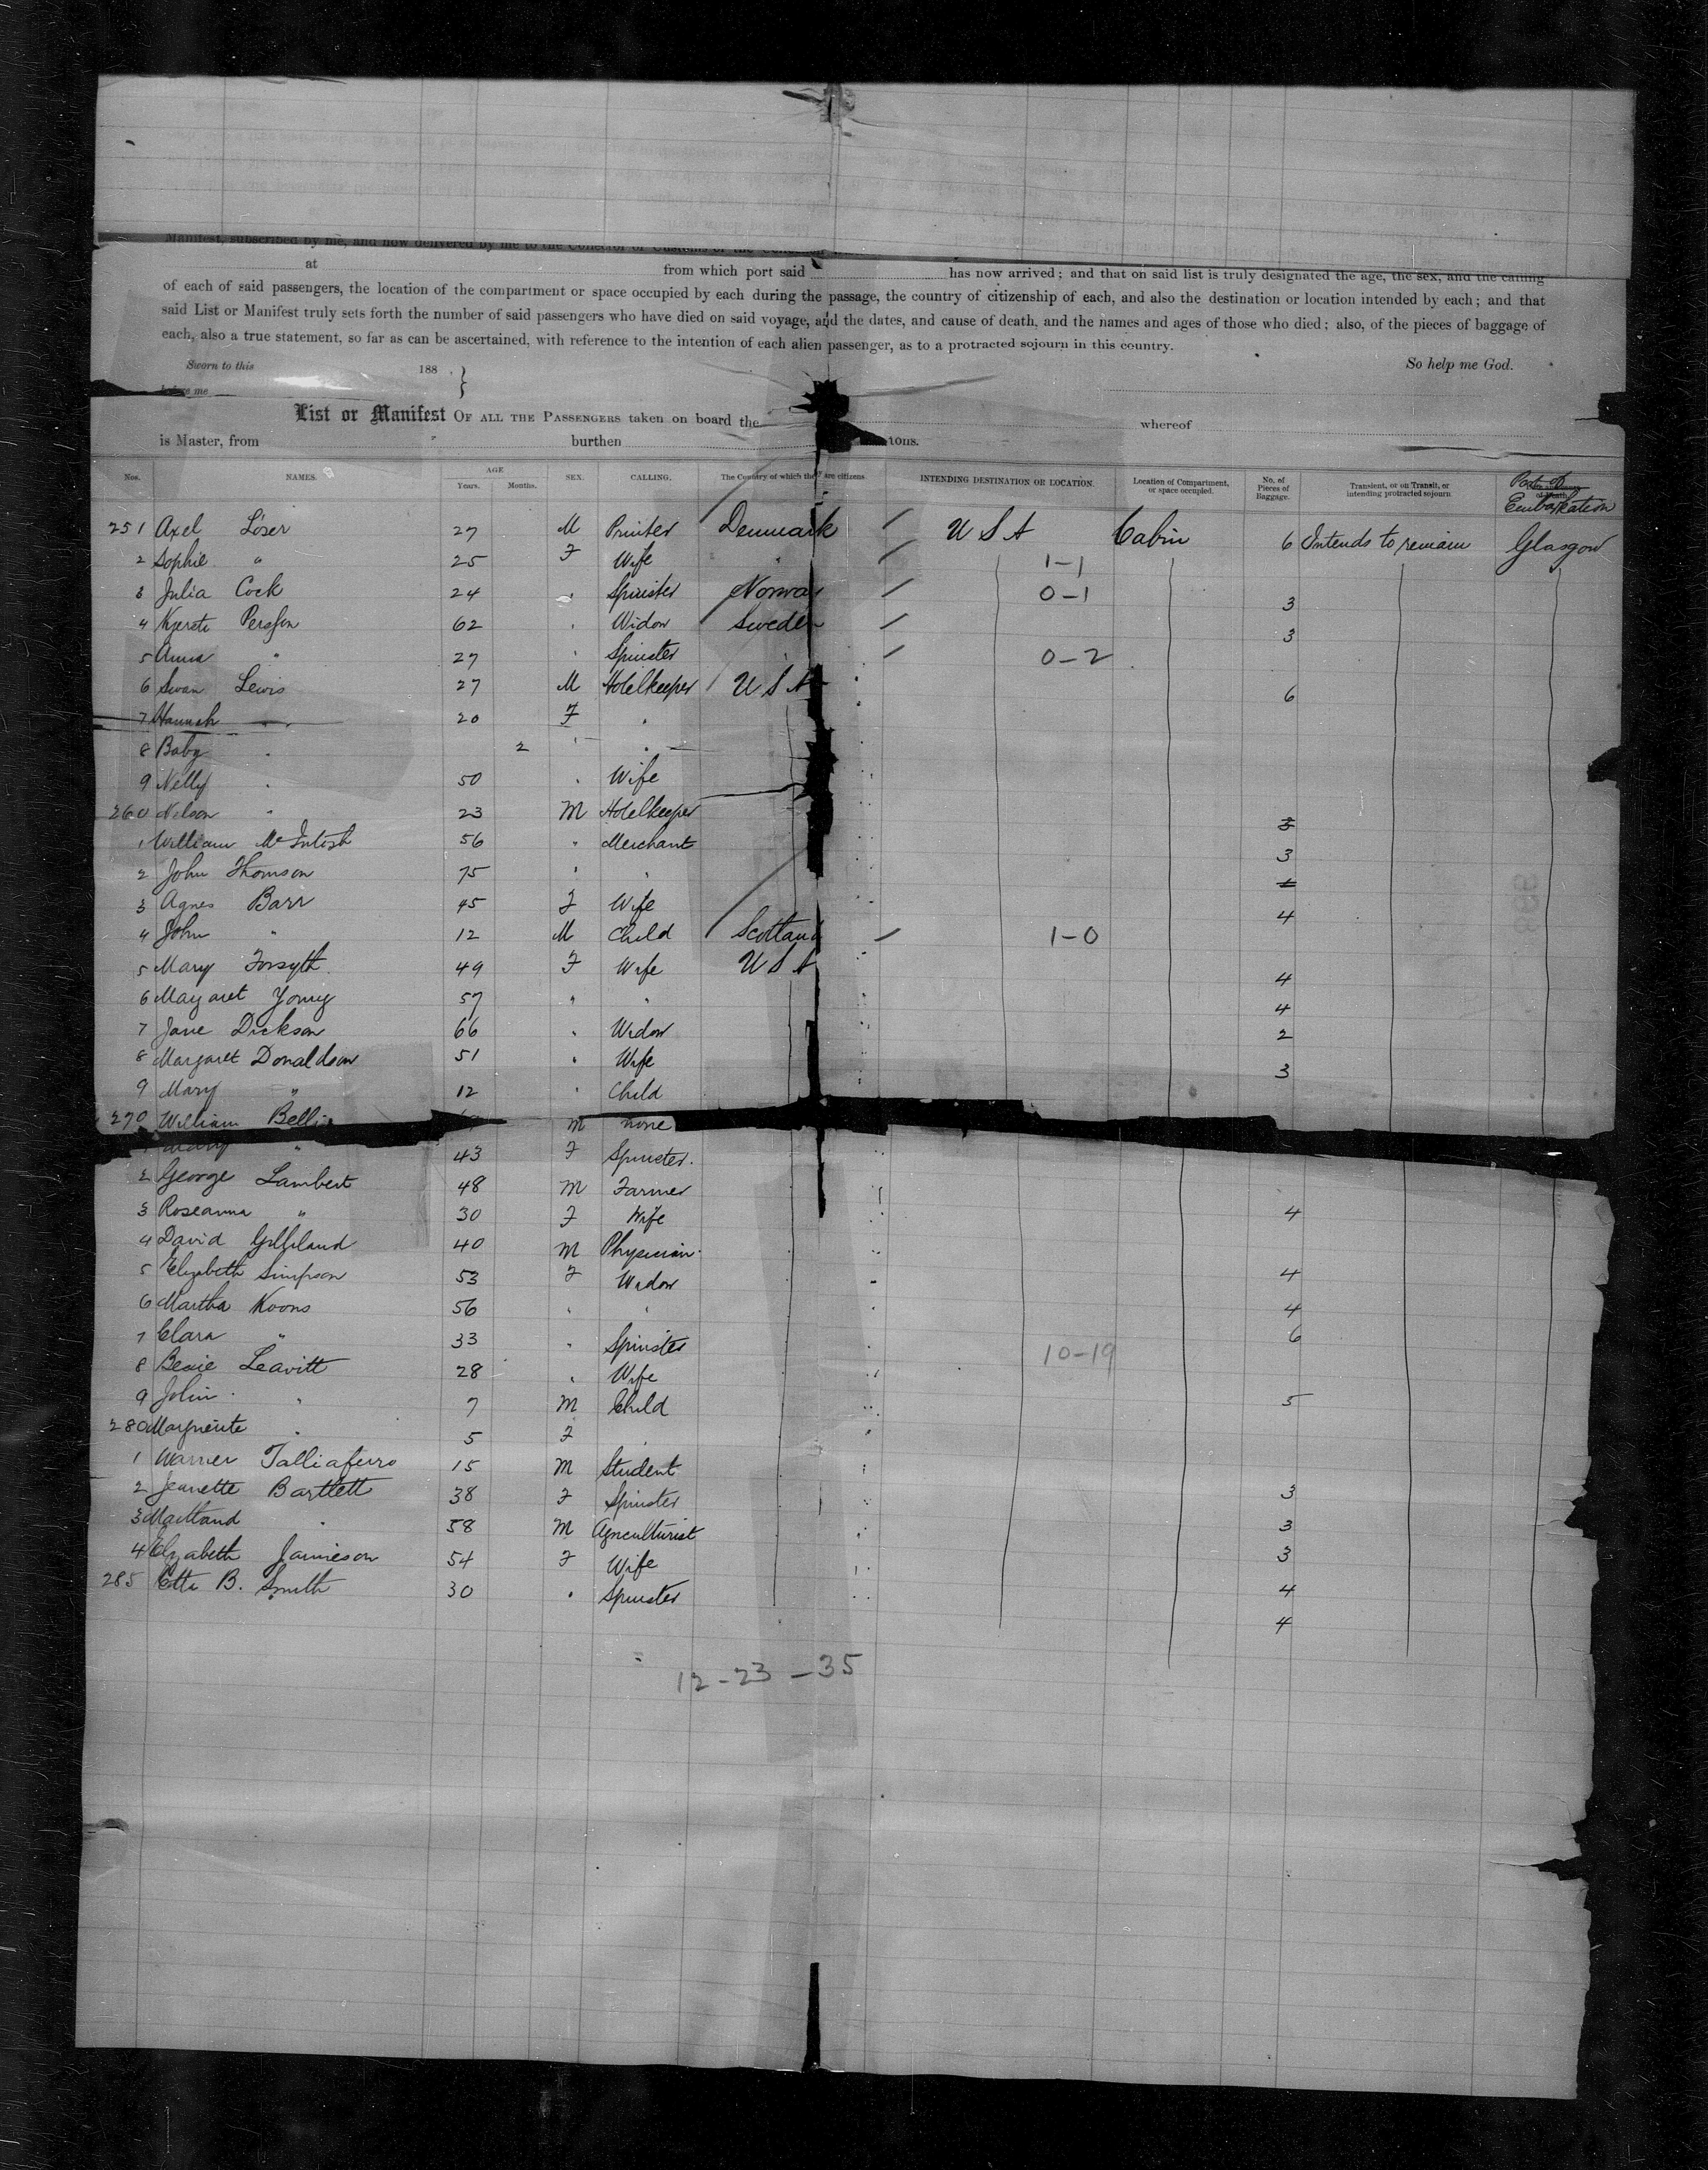 Manifest, subscribed by me, and now delivered by me to the Collector of Customs of the Collection
at from which port said has now arrived; and that on said list is truly designated the age, the sex, and the calling
of each of said passengers, the location of the compartment or space occupied by each during the passage, the country of citizenship of each, and also the destination or location intended by each; and that
said List or Manifest truly sets forth the number of said passengers who have died on said voyage, and the dates, and cause of death, and the names and ages of those who died; also, of the pieces of baggage of
each, also a true statement, so far as can be ascertained, with reference to the intention of each alien passenger, as to a protracted sojourn in this country.
Sworn to this 188 . } So help me God.
before me
List or Manifest OF ALL THE PASSENGERS taken on board the whereof
is Master, from burthen tons.
Nos. NAMES. AGE Years. Months. SEX. CALLING. The Country of which they are citizens INTENDING DESTINATION OR LOCATION. Location of Compartment, or space occupied. No. of Pieces of Baggage. Transient, or on Transit, or intending protracted sojourn. Port of Embarkation
251 Axel Löser 27 M Printer Denmark / U S A Cabin 6 Intends to remain Glasgow
2 Sophie " 25 F Wife " / 1-1
3 Julia Cock 24 " Spinster Norway / 0-1 3
4 Kjerste Persson 62 " Widow Sweden / 3
5 Anna " 27 " Spinster / 0-2
6 Swan Lewis 27 M Hotelkeeper U S A 6
7 Hannah " 20 F "
8 Baby " 2 " "
9 Nelly " 50 " Wife
260 Nelson " 23 M Hotelkeeper 3
1 William McIntosh 56 " Merchant 3
2 John Thomson 75 " "
3 Agnes Barr 45 F Wife 4
4 John " 12 M Child Scotland / 1-0
5 Mary Forsyth 49 F Wife U S A 4
6 Margaret Young 57 " " 4
7 Jane Dickson 66 " Widow 2
8 Margaret Donaldson 51 " Wife 3
9 Mary " 12 " Child
270 William M none
1 Mary " 43 F Spinster.
2 George Lambert 48 M Farmer
3 Roseanna " 30 F Wife 4
4 David Gilliland 40 M Physician
5 Elizabeth Simpson 53 F Widow 4
6 Martha Koons 56 " " 4
7 Clara " 33 " Spinster 6
8 Bessie Leavitt 28 " Wife 10-19
9 John " 7 M Child 5
280 Marguerite " 5 F "
1 Warner Talliaferro 15 M Student
2 Jeanette Bartlett 38 F Spinster 3
3 Maitland " 58 M Agriculturist 3
4 Elizabeth Jamieson 54 F Wife 3
285 Etta B. Smith 30 " Spinster 4
4
12-23-35